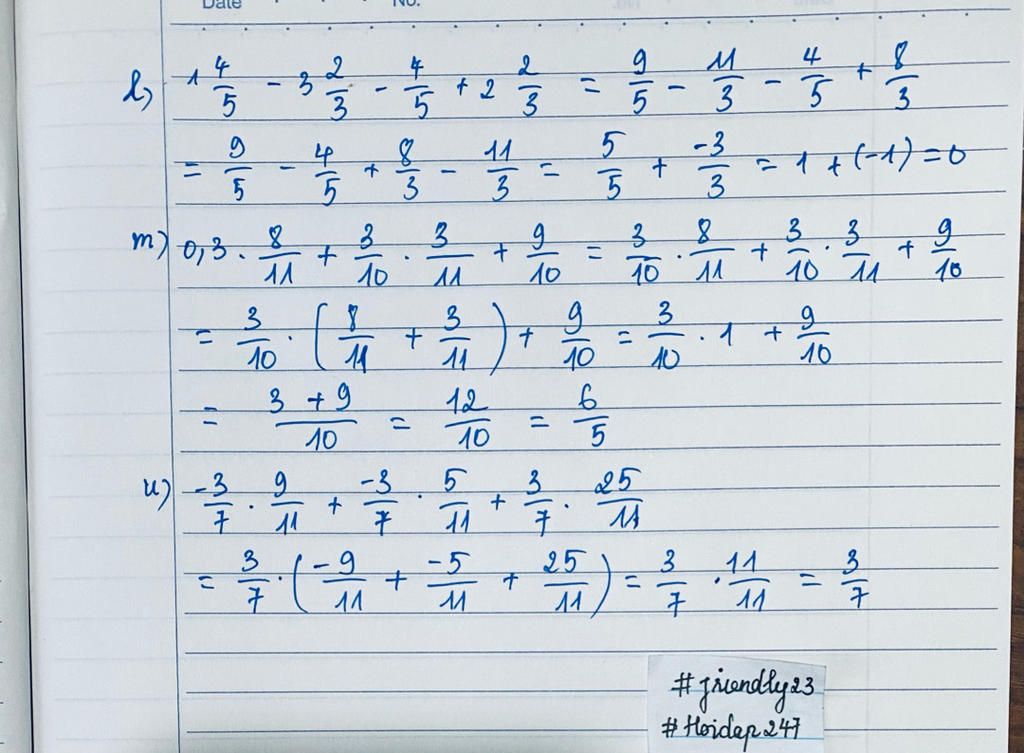 Date No.
l) 1 4/5 - 3 2/3 - 4/5 + 2 2/3 = 9/5 - 11/3 - 4/5 + 8/3
= 9/5 - 4/5 + 8/3 - 11/3 = 5/5 + -3/3 = 1 + (-1) = 0
m) 0,3 . 8/11 + 3/10 . 3/11 + 9/10 = 3/10 . 8/11 + 3/10 . 3/11 + 9/10
= 3/10 . (8/11 + 3/11) + 9/10 = 3/10 . 1 + 9/10
= 3 + 9/10 = 12/10 = 6/5
u) -3/7 . 9/11 + -3/7 . 5/11 + 3/7 . 25/11
= 3/7 . (-9/11 + -5/11 + 25/11) = 3/7 . 11/11 = 3/7
#friendly23
#Hoidap247